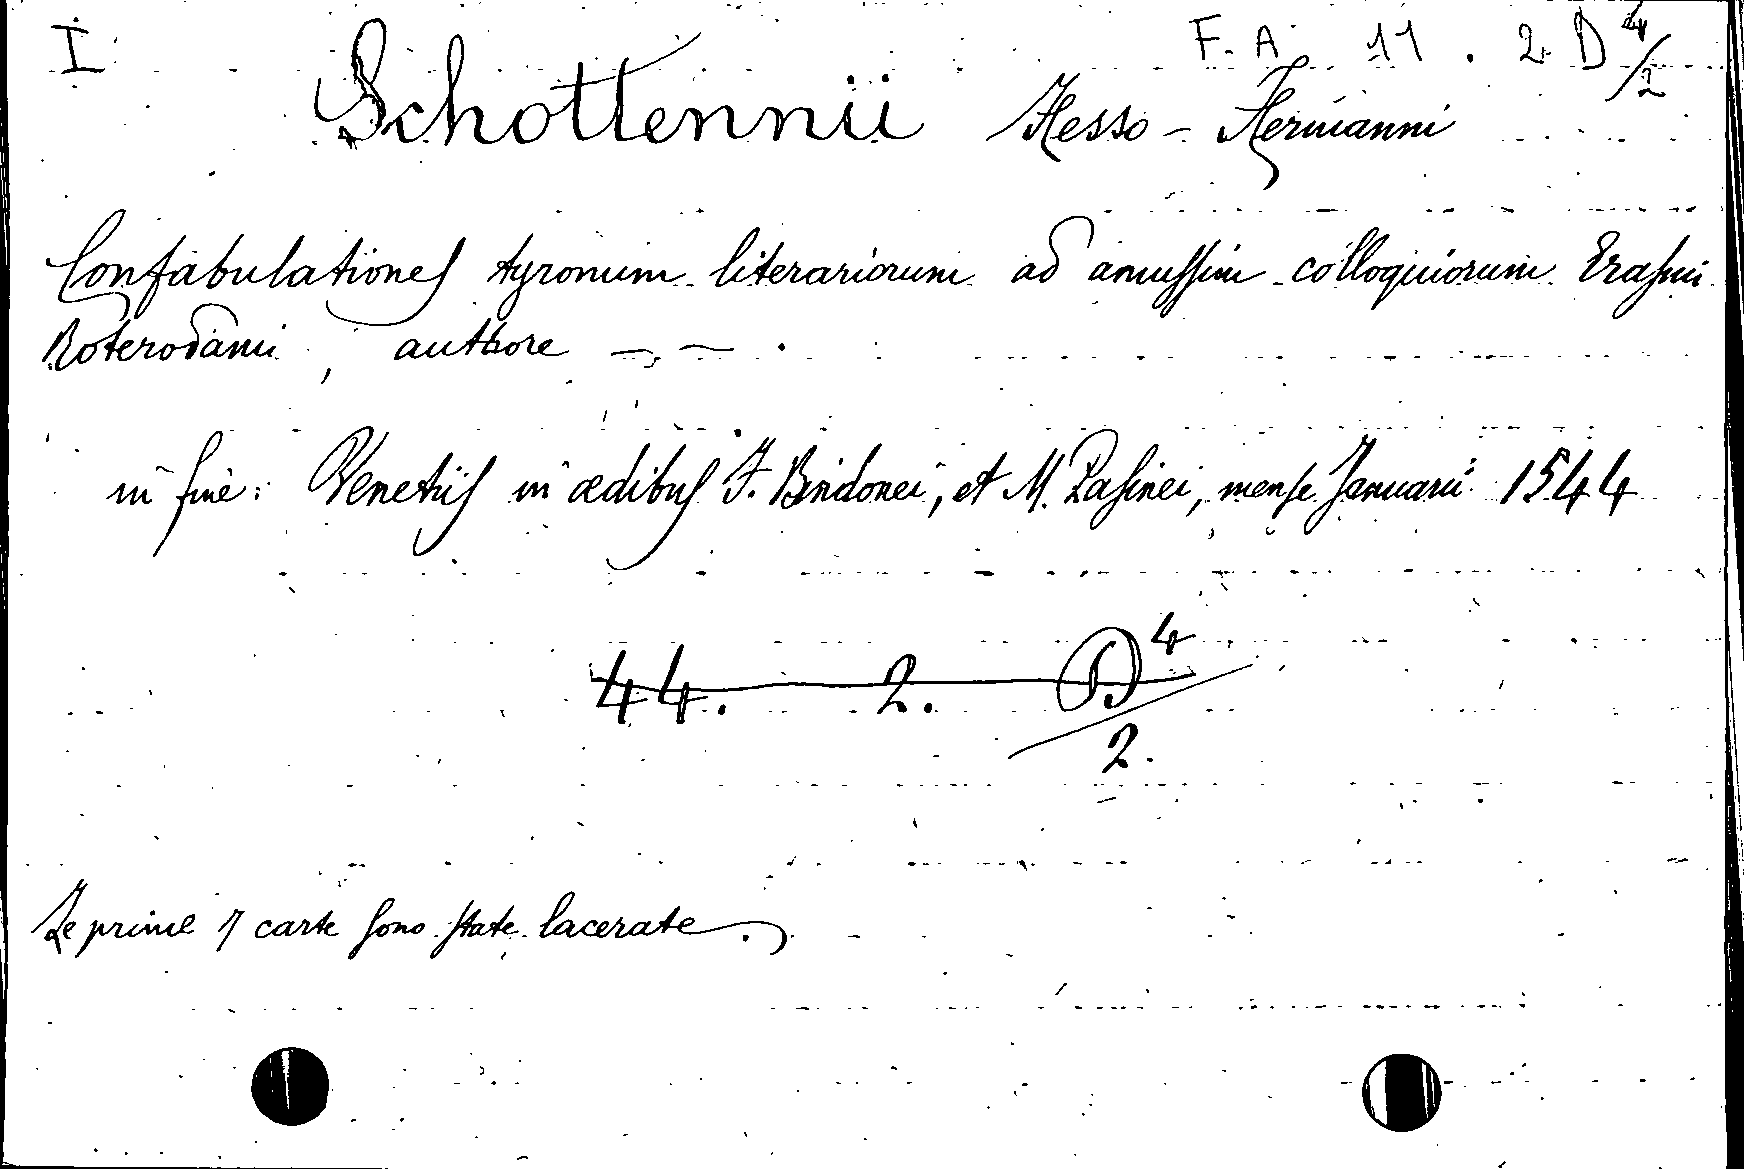 I
F. A. 11 . 2. D 4/2
Schottennii Hesso - Hermanni
Confabulationes tyronum literariorum ad amussim colloquiorum Erasmi
Roterodami, authore — — .
in fine: Venetiis in ædibus F. Bindonei, et M. Pasinei, mense Januarii 1544
44. 2. D 4/2.
Le prime 7 carte sono state lacerate.